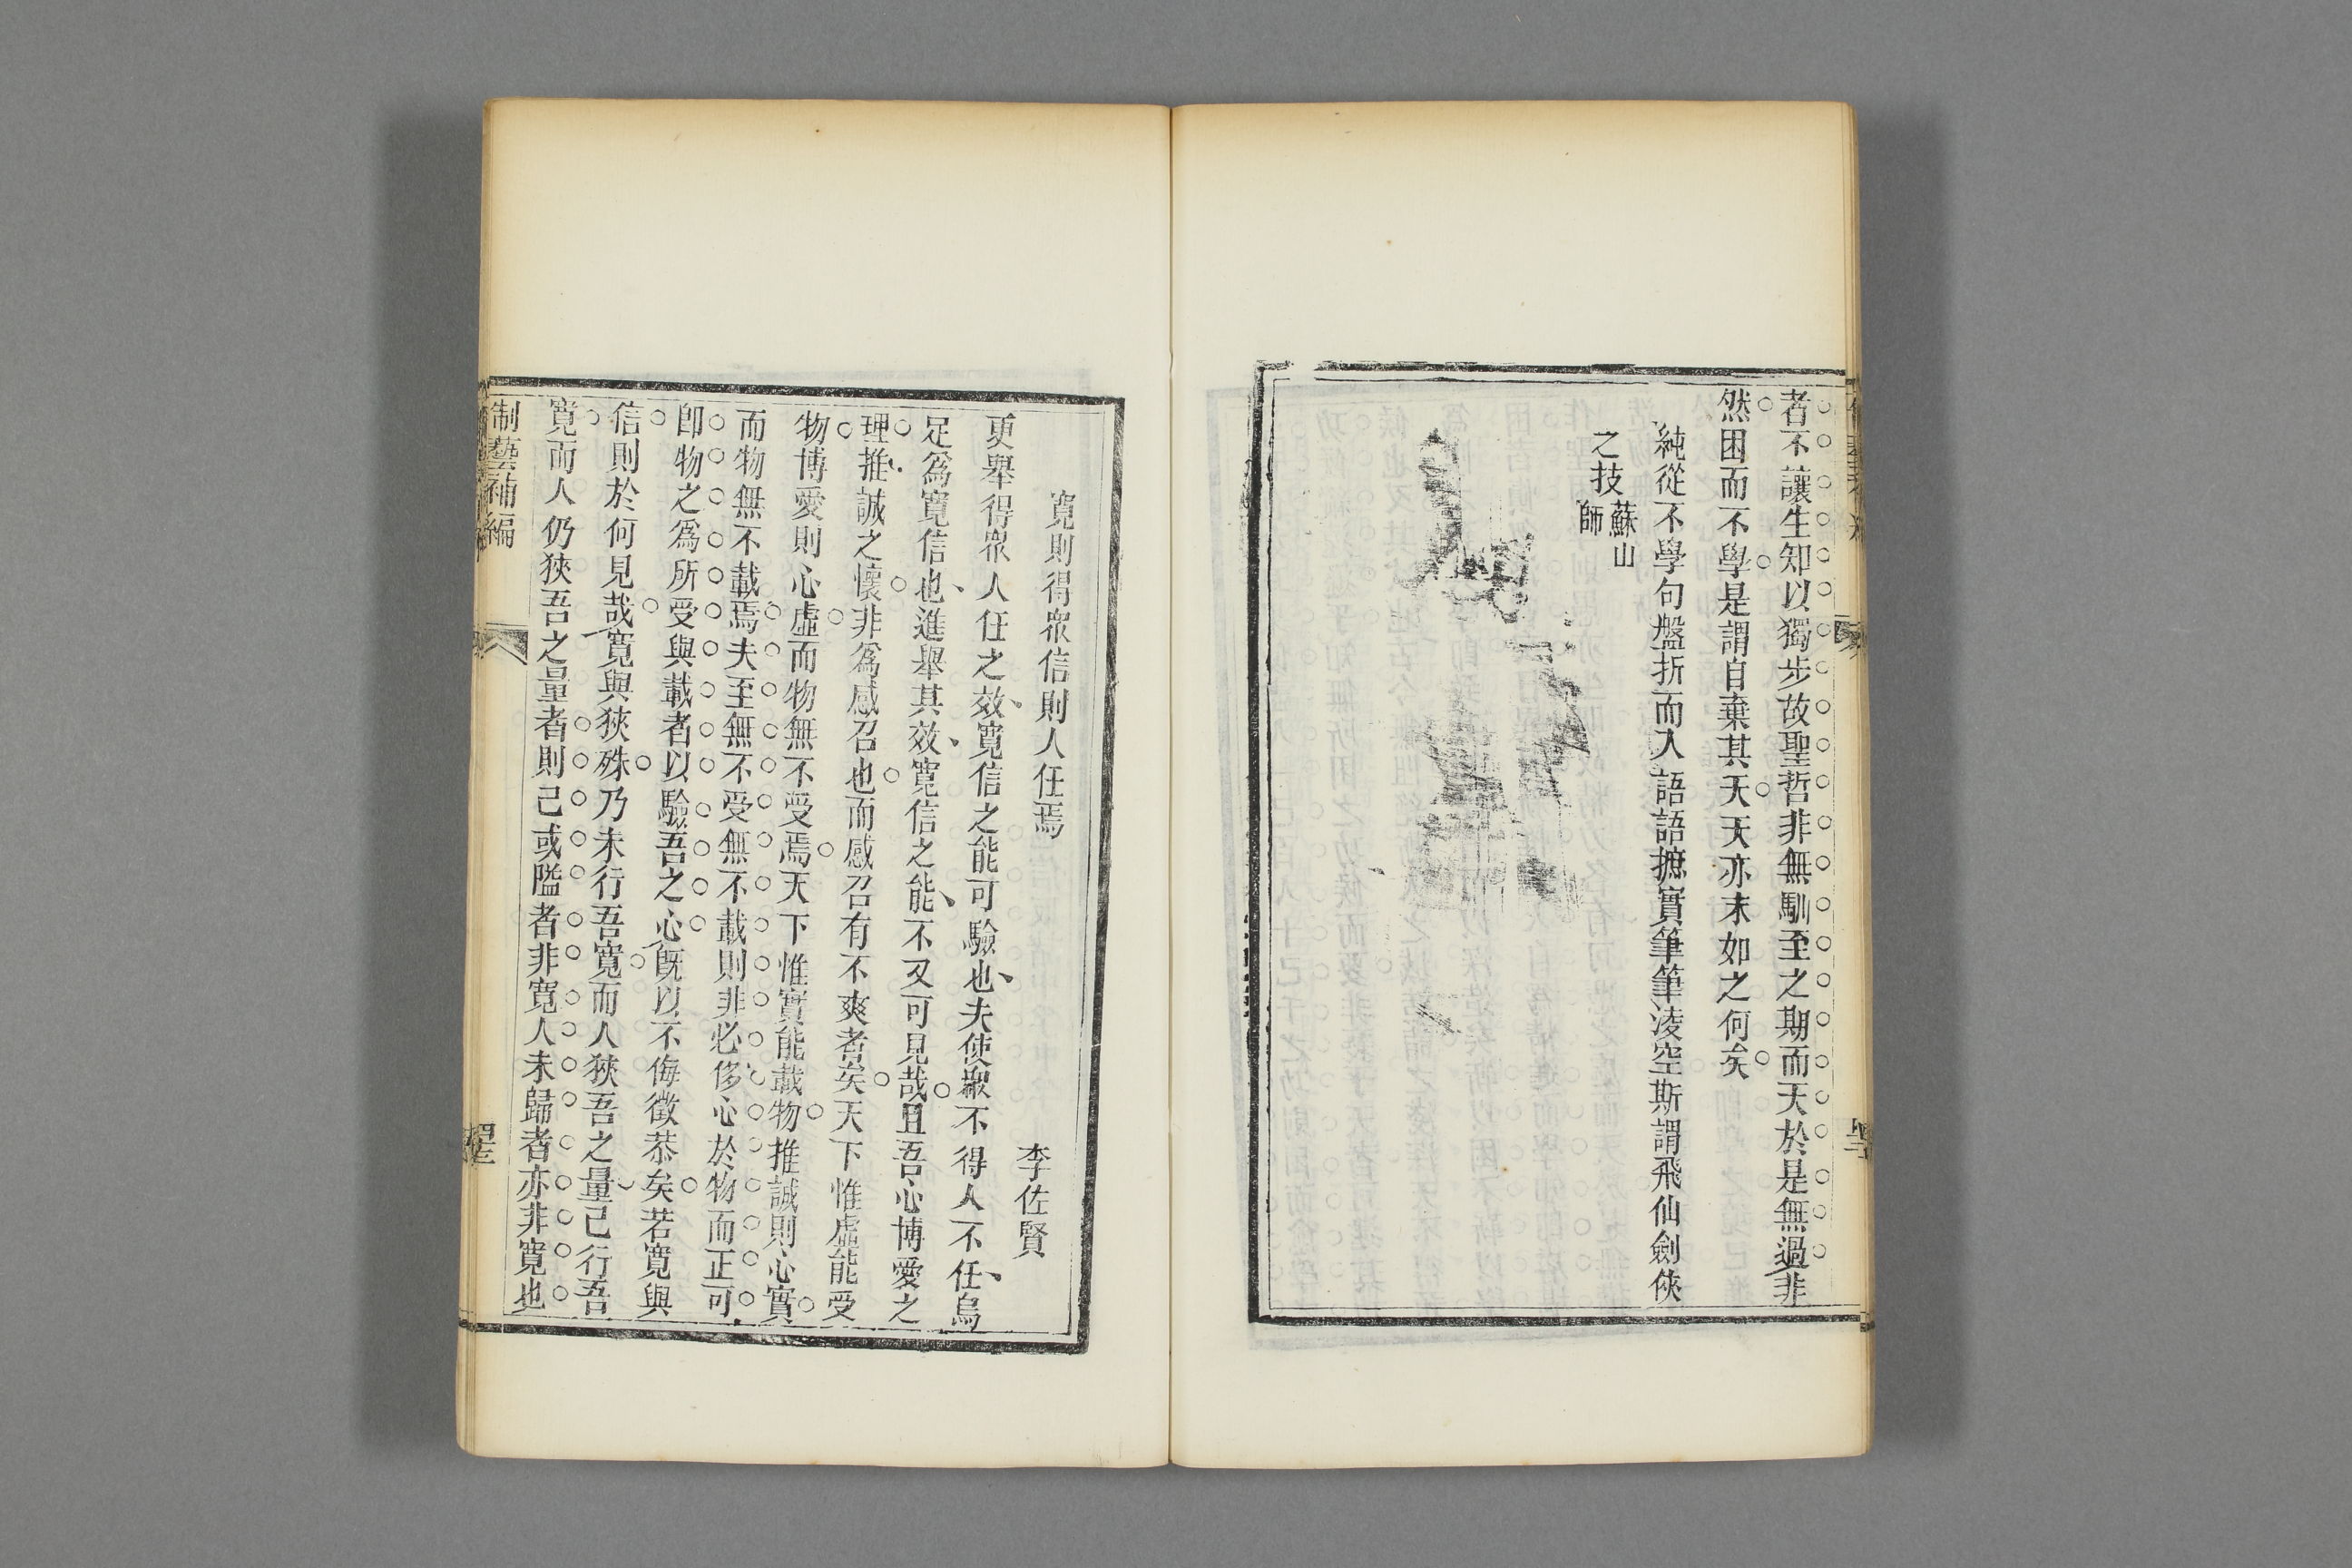 者不讓生知以獨步故聖哲非無馴至之期而天於是無過非
然困而不學是謂自棄其天天亦末如之何矣
純從不學句盤折而入語語摭實筆筆淩空斯謂飛仙劍俠
之技蘇山師
寬則得眾信則人任焉
李佐賢
更舉得眾人任之效寬信之能可驗也夫使眾不得人不任烏
足為寬信也進舉其效寬信之能不又可見哉且吾心博愛之
理推誠之懷非為感召也而感召有不爽者矣天下惟虛能受
物博愛則心虛而物無不受焉天下惟實能載物推誠則心實
而物無不載焉夫至無不受無不載則非必侈心於物而正可
卽物之為所受與載者以驗吾之心旣以不侮徵恭矣若寬與
信則於何見哉寬與狹殊乃未行吾寬而人狹吾之量己行吾
寬而人仍狹吾之量者則己或隘者非寬人未歸者亦非寬也
制藝補編